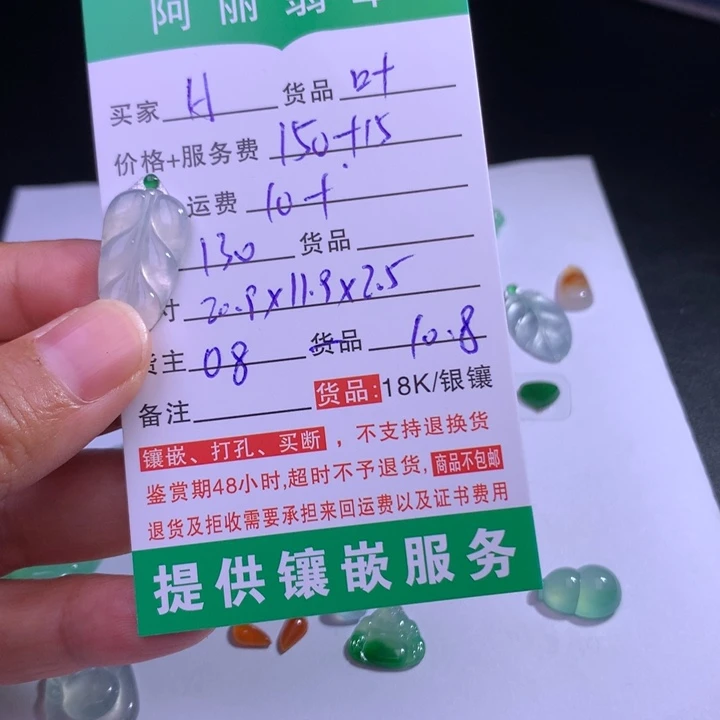 阿丽翡翠
买家 H 货品 叶
价格+服务费 150+15
运费 10+
130 货品
寸 20.9×11.9×2.5
货主 08 货品 10.8
备注 货品:18K/银镶
镶嵌、打孔、买断，不支持退换货
鉴赏期48小时,超时不予退货,商品不包邮
退货及拒收需要承担来回运费以及证书费用
提供镶嵌服务